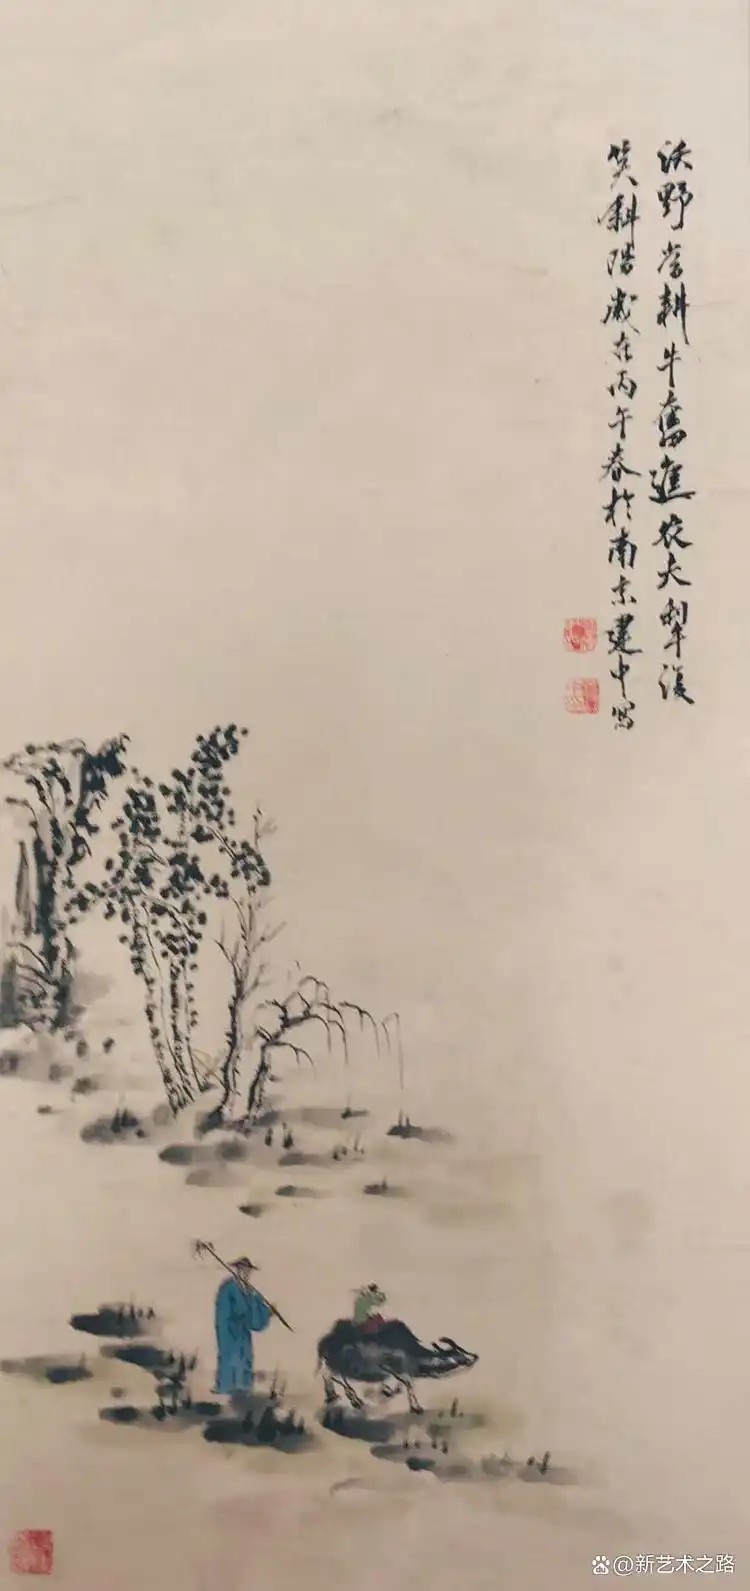 沃野当耕牛奮進农夫犁後
笑斜陽歲在丙午春於南京建中写
@新艺术之路